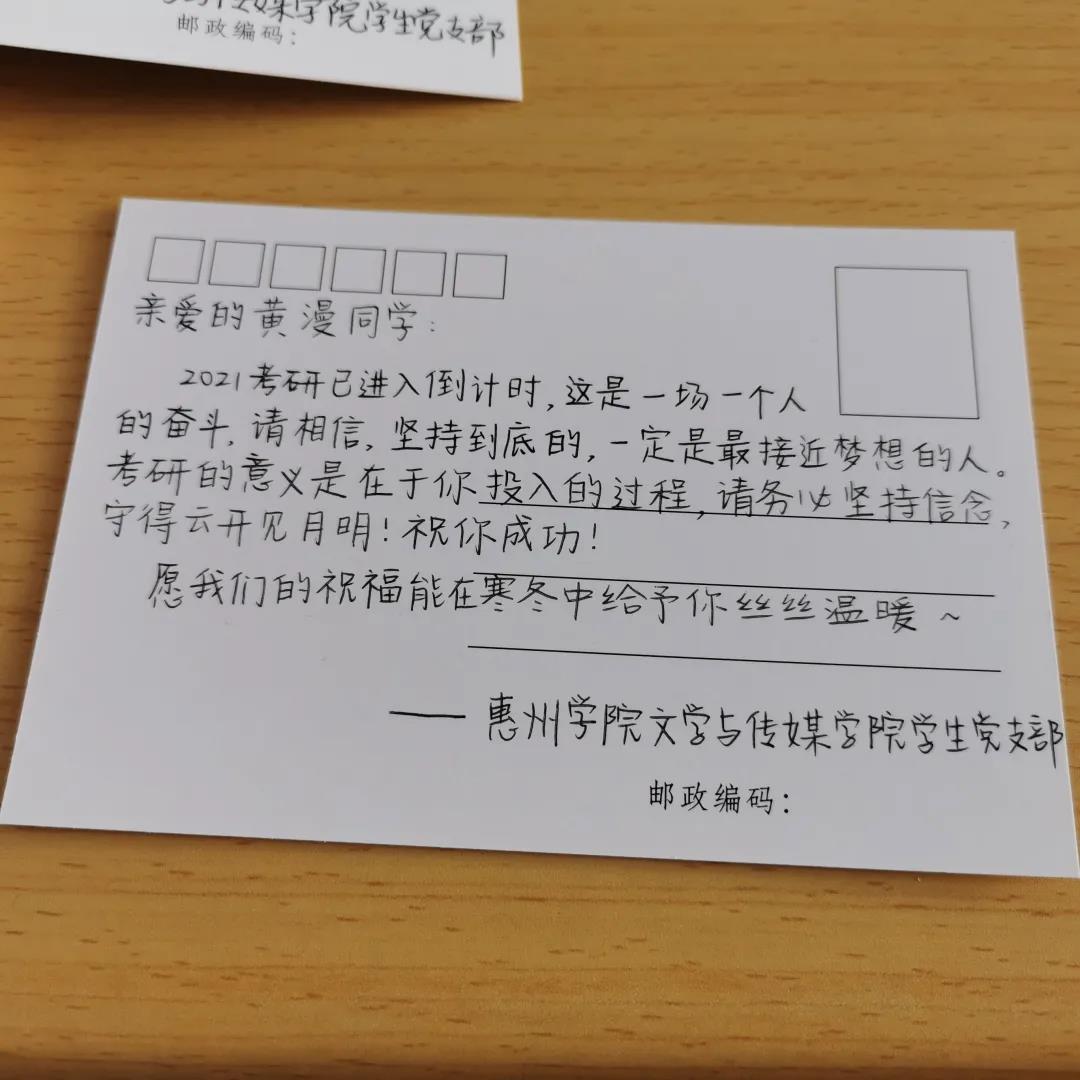 传媒学院学生党支部
邮政编码：
亲爱的黄漫同学：
2021考研已进入倒计时，这是一场一个人
的奋斗，请相信，坚持到底的，一定是最接近梦想的人。
考研的意义是在于你投入的过程，请务必坚持信念，
守得云开见月明！祝你成功！
愿我们的祝福能在寒冬中给予你丝丝温暖～
——惠州学院文学与传媒学院学生党支部
邮政编码：